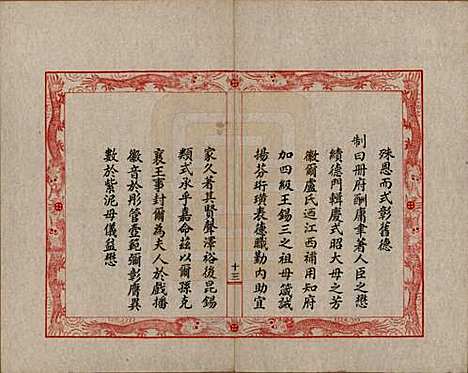 殊恩而式彰舊德
制曰冊府酬庸聿著人臣之懋
績德門輯慶式昭大母之芳
徽爾盧氏迺江西補用知府
加四級王錫三之祖母箴誡
揚芬珩璜表德職勤內助宜
十三
家久著其賢聲澤裕後昆錫
類式承乎嘉命茲以爾孫克
襄王事封爾為夫人於戲播
徽音於彤管壼範彌彰膺異
數於紫泥母儀益懋